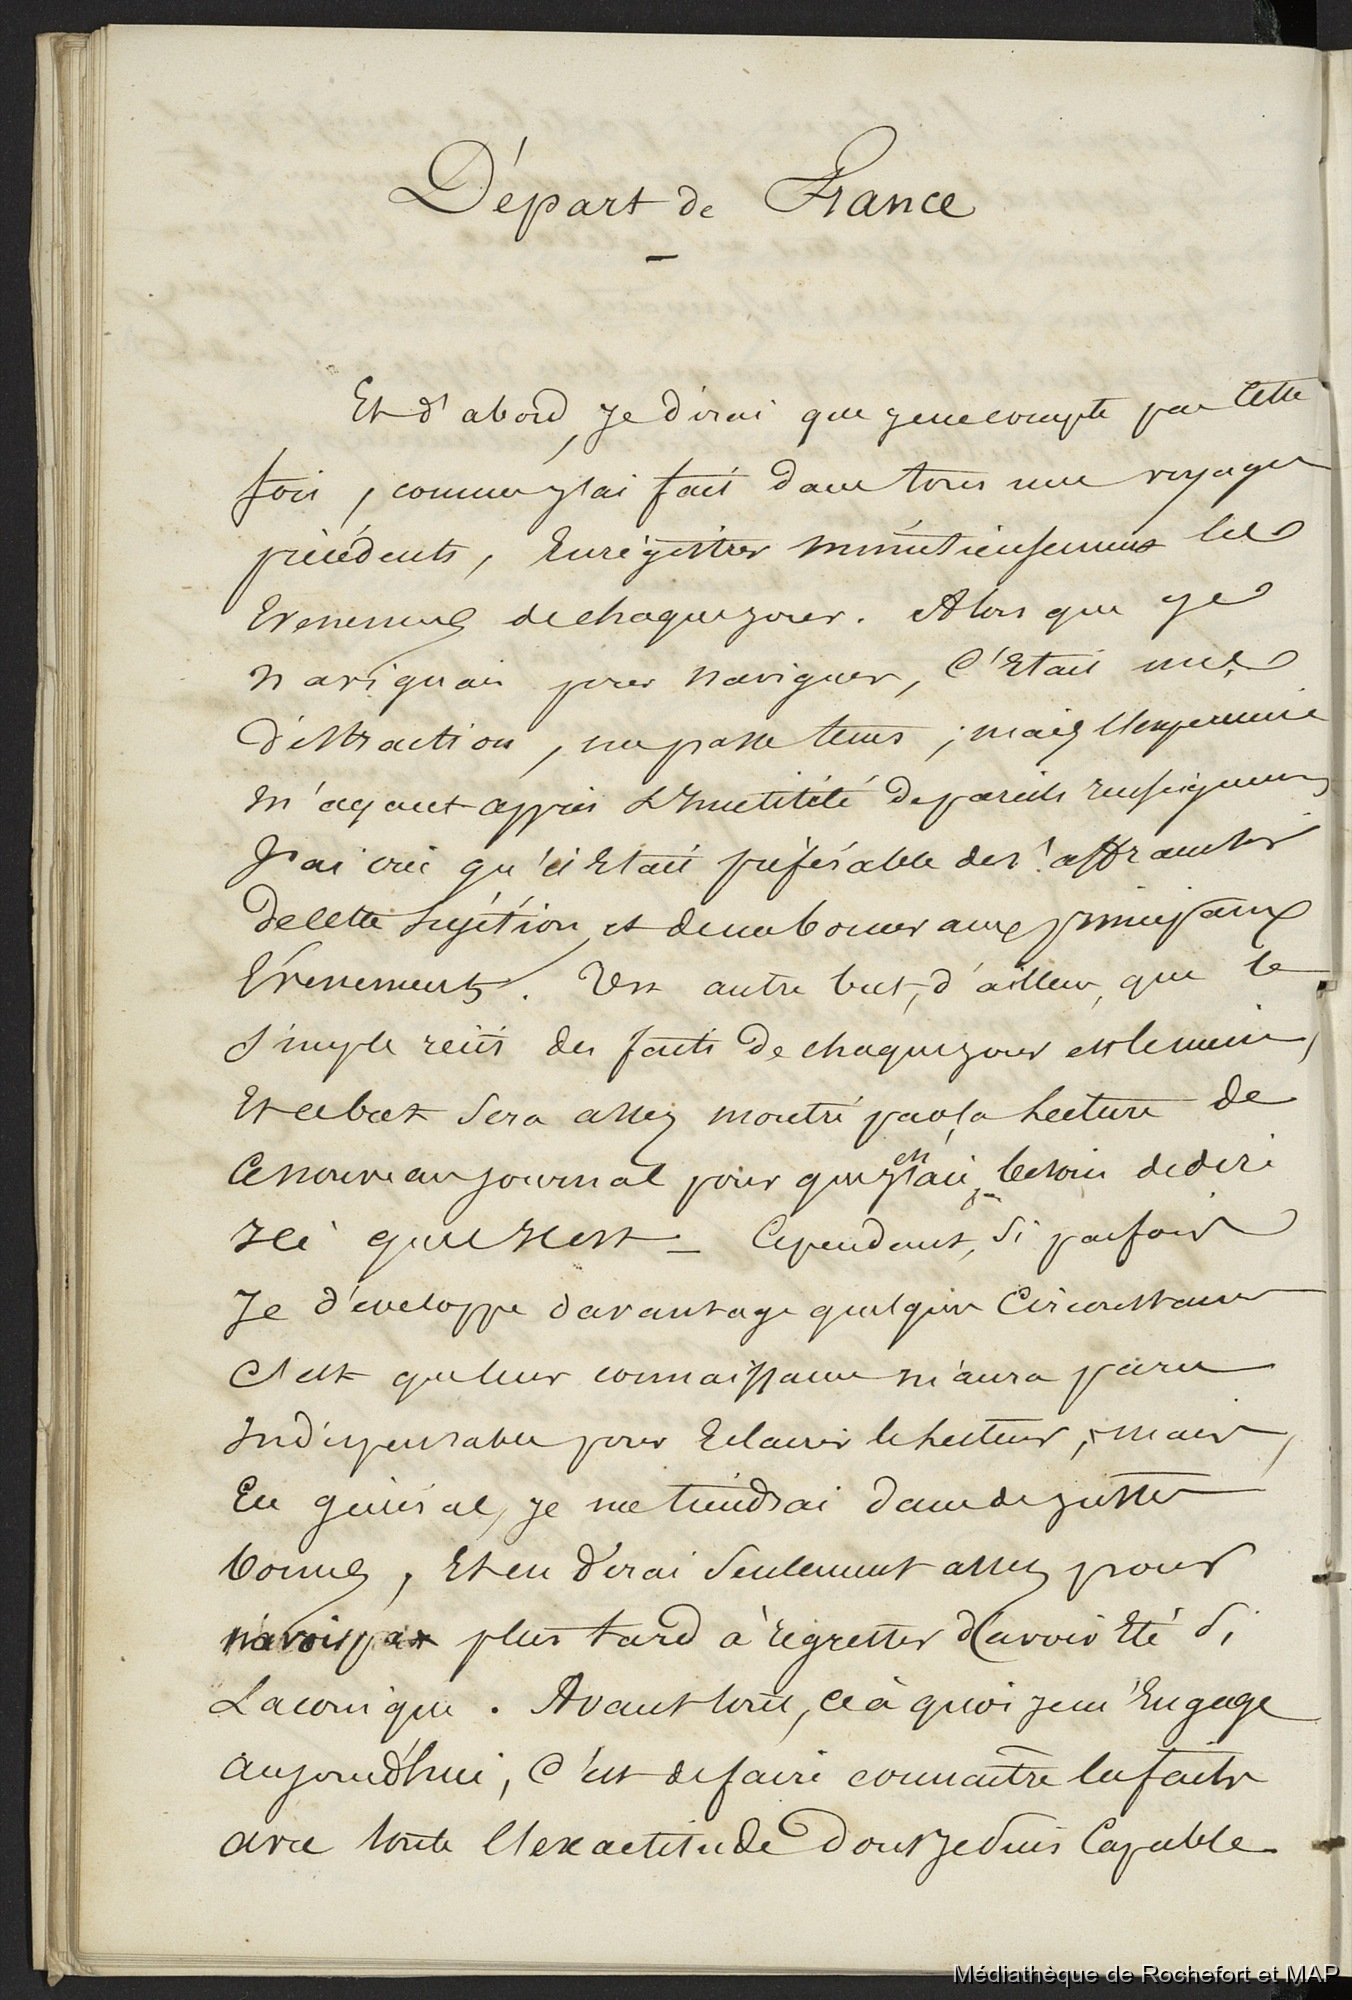 Départ de France
Et d'abord, je dirai que je ne compte pas cette
fois, comme j'ai fait dans tous mes voyages
précédents, Enrégistrer minutieusement les
Evenemens de chaque jour. Alors que je
naviguais pour naviguer, c'Etait une
distraction, un passe tems ; mais l'expérience
m'ayant appris L'inutilité de pareils renseignemens
J'ai cru qu'il Etait préférable de s'affranchir
de cette sujétion, et de me borner aux principaux
Evénements. Un autre but, d'ailleurs, que le
simple récit des faits de chaque jour est le mien,
Et ce but sera assez montré par la Lecture de
Ce nouveau journal pour que j'aie besoin de dire
Ici quel il est _ Cependant, si parfois
Je développe davantage quelques Circonstances
C'est que leur connaissance m'aura paru
Indispensable pour Eclairer le Lecteur ; mais,
En général, je me tiendrai dans de justes
bornes, Et en dirai seulement assez pour
n'avoir pas plus tard à regretter d'avoir Eté si
Laconique. Avant tout, ce à quoi je m'Engage
aujourd'hui, C'est de faire connaître les faits
avec toute l'exactitude dont je suis Capable.
Médiathèque de Rochefort et MAP